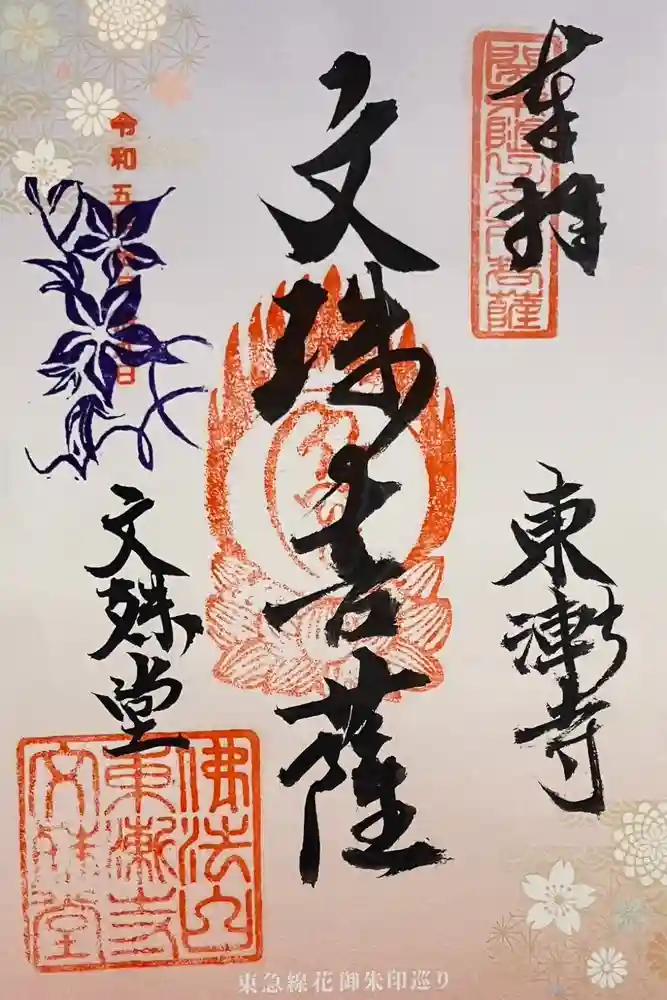 奉拝
東漸寺
文殊菩薩
令和五
日
文殊堂
佛法山
東漸寺
文殊堂
東急線花御朱印巡り